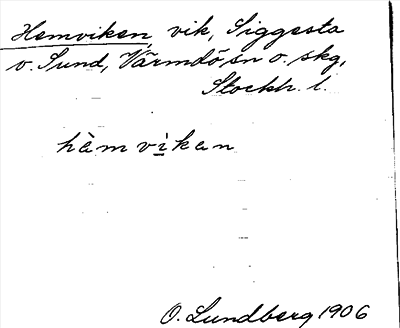 Hemviken, vik, Siggesta
v. Sund, Värmdö sn o. skg,
Stockh. l.
hèmvikan
O. Lundberg 1906